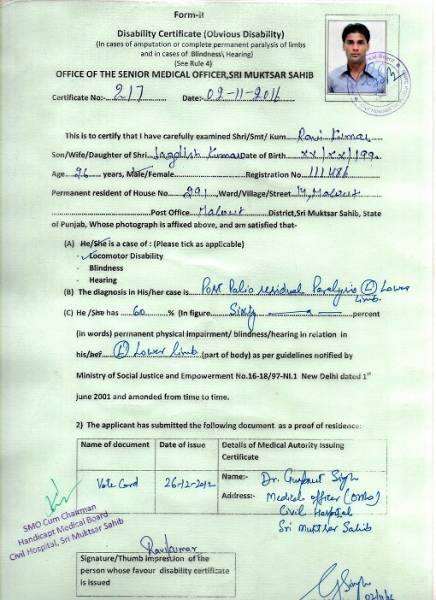 Form-II
Disability Certificate (Obvious Disability)
(In cases of amputation or complete permanent paralysis of limbs
and in cases of Blindness\ Hearing)
(See Rule 4)
OFFICE OF THE SENIOR MEDICAL OFFICER,SRI MUKTSAR SAHIB
Certificate No:- 217 Date: 02-11-2016
This is to certify that I have carefully examined Shri/Smt/ Kum Ravi Kumar
Son/Wife/Daughter of Shri Jagdish Kumar Date of Birth xx/xx/199
Age 26 years, Male/Female Registration No 111486
Permanent resident of House No 291, Ward/Village/Street 14, Malout
Post Office Malout District,Sri Muktsar Sahib, State
of Punjab, Whose photograph is affixed above, and am satisfied that-
(A) He/She is a case of : (Please tick as applicable)
- Locomotor Disability
- Blindness
- Hearing
(B) The diagnosis in His/her case is Post Polio residual Paralysis (L) Lower
limb.
(C) He /She has 60 % (In figure Sixty percent
(in words) permanent physical impairment/ blindness/hearing in relation in
his/her (L) Lower limb (part of body) as per guidelines notified by
Ministry of Social Justice and Empowerment No.16-18/97-NI.1 New Delhi dated 1st
june 2001 and amonded from time to time.
2) The applicant has submitted the following document as a proof of residence:
Name of document Date of issue Details of Medical Autority Issuing
Certificate
Vote Card 26-12-2012 Name:- Dr. Gurpreet Singh
Address:- Medical officer (Ortho)
Civil Hospital
Sri Muktsar Sahib
SMO Cum Chairman
Handicapt Medical Board
Civil Hospital, Sri Muktsar Sahib
Ravi kumar
Signature/Thumb Impression of the
person whose favour disability certificate
is issued
GSingh
02/11/16